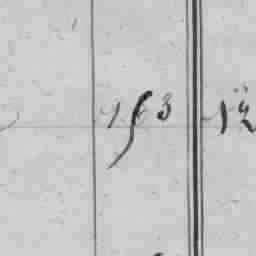 153 12